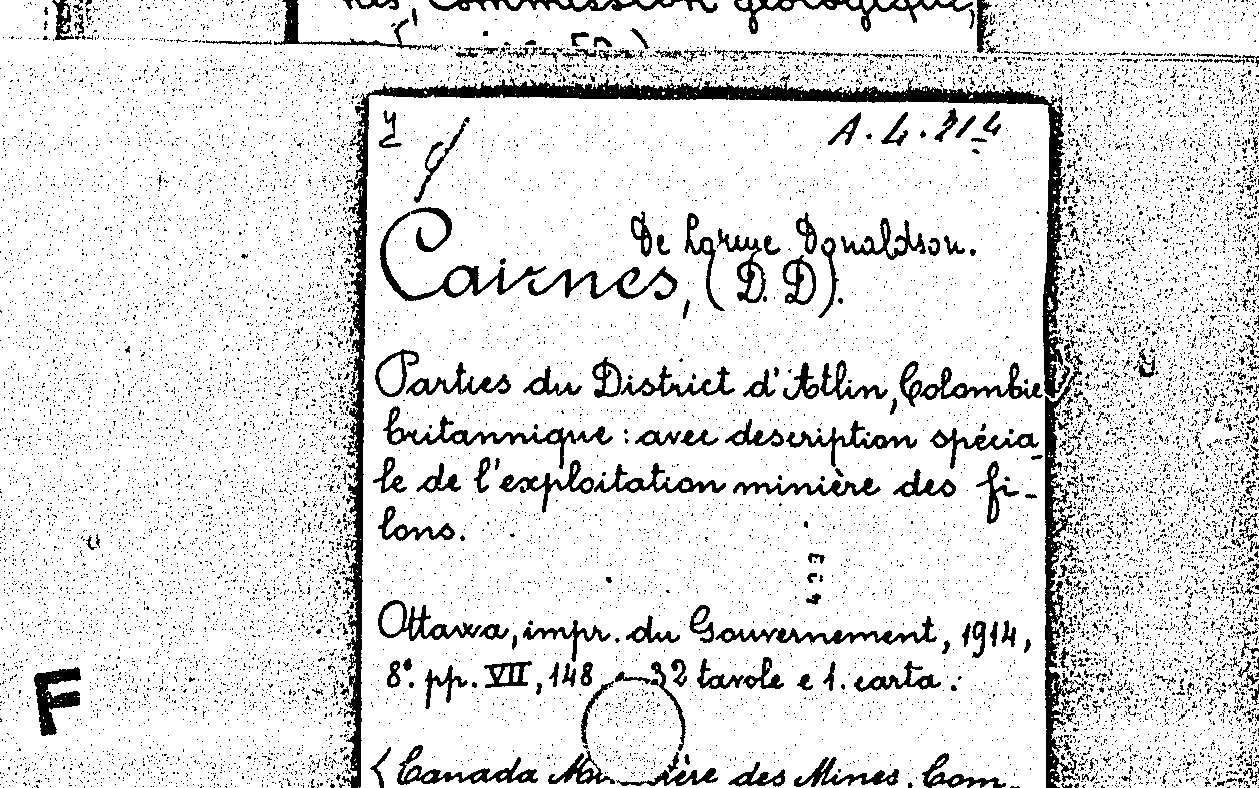 Commission géologique,
A. 4. 214
De Lorme Donaldson.
Cairnes, (D. D).
Parties du District d'Atlin, Colombie
britannique : avec description spécia_
le de l'exploitation minière des fi-
lons.
Ottawa, impr. du Gouvernement, 1914,
8°. pp. VII, 148 32 tavole e 1. carta.
F
(Canada des Mines, Com.